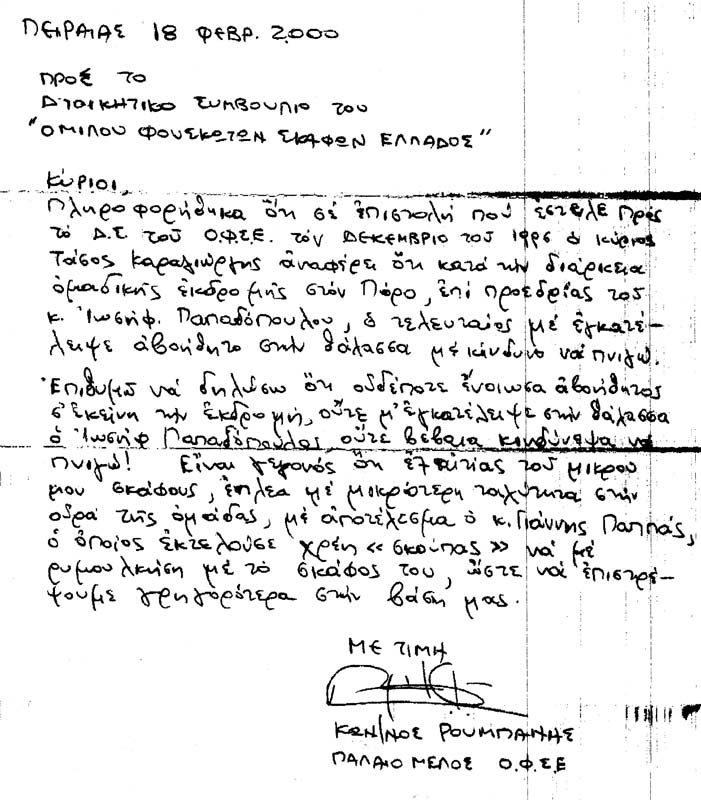 ΠΕΙΡΑΙΑΣ 18 ΦΕΒΡ. 2000
ΠΡΟΣ ΤΟ
ΔΙΟΙΚΗΤΙΚΟ ΣΥΜΒΟΥΛΙΟ ΤΟΥ
"ΟΜΙΛΟΥ ΦΟΥΣΚΩΤΩΝ ΣΚΑΦΩΝ ΕΛΛΑΔΟΣ"
Κύριοι,
Πληροφορήθηκα ὅτι σέ ἐπιστολή πού ἔστειλε πρός
τό Δ.Σ τοῦ Ο.Φ.Σ.Ε. τόν ΔΕΚΕΜΒΡΙΟ τοῦ 1996 ὁ κύριος
Τάσος Καραγιώργης ἀναφέρει ὅτι κατά την διάρκεια
ὁμαδικῆς ἐκδρομῆς στόν Πόρο, ἐπί προεδρίας τοῦ
κ. Ἰωσήφ. Παπαδόπουλου, ὁ τελευταῖος μέ ἐγκατέ-
λειψε ἀβοήθητο στήν θάλασσα μέ κίνδυνο νά πνιγῶ.
Ἐπιθυμῶ νά δηλώσω ὅτι οὐδέποτε ἔνοιωσα ἀβοήθητος
σ' ἐκείνη την ἐκδρομή, οὔτε μ' ἐγκατέλειψε στήν θάλασσα
ὁ Ἰωσήφ Παπαδόπουλος, οὔτε βέβαια κινδύνεψα νά
πνιγῶ! Εἶναι γεγονός ὅτι ἐξ αἰτίας τοῦ μικροῦ
μου σκάφους, ἔπλεα μέ μικρότερη ταχύτητα στήν
οὐρά τῆς ὁμάδας, μέ ἀποτέλεσμα ὁ κ. Γιάννης Παππᾶς,
ὁ ὁποῖος ἐκτελοῦσε χρέη «σκούπας» νά μέ
ρυμουλκήση μέ τό σκάφος του, ὥστε νά ἐπιστρέ-
ψουμε γρηγορότερα στήν βάση μας.
ΜΕ ΤΙΜΗ
ΚΩΝ/ΝΟΣ ΡΟΥΜΠΑΝΗΣ
ΠΑΛΑΙΟ ΜΕΛΟΣ Ο.Φ.Σ.Ε